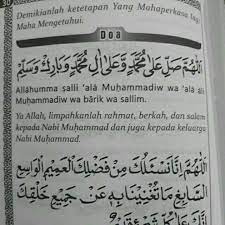 Demikianlah ketetapan Yang Mahaperkasa lagi
Maha Mengetahui.
Doa
اَللّٰهُمَّ صَلِّ عَلَى مُحَمَّدٍ وَعَلَى اٰلِ مُحَمَّدٍ وَبَارِكْ وَسَلِّمْ
Allāhumma ṣalli 'alā Muḥammadiw wa 'alā āli
Muḥammadiw wa bārik wa sallim.
Ya Allah, limpahkanlah rahmat, berkah, dan salam
kepada Nabi Muhammad dan juga kepada keluarga
Nabi Muhammad.
اَللّٰهُمَّ اِنَّا نَسْئَلُكَ مِنْ فَضْلِكَ الْعَمِيْمِ الْوَاسِعِ
السَّابِغِ مَا تُغْنِيْنَا بِهِ عَنْ جَمِيْعِ خَلْقِكَ
اِنَّكَ عَلَى كُلِّ